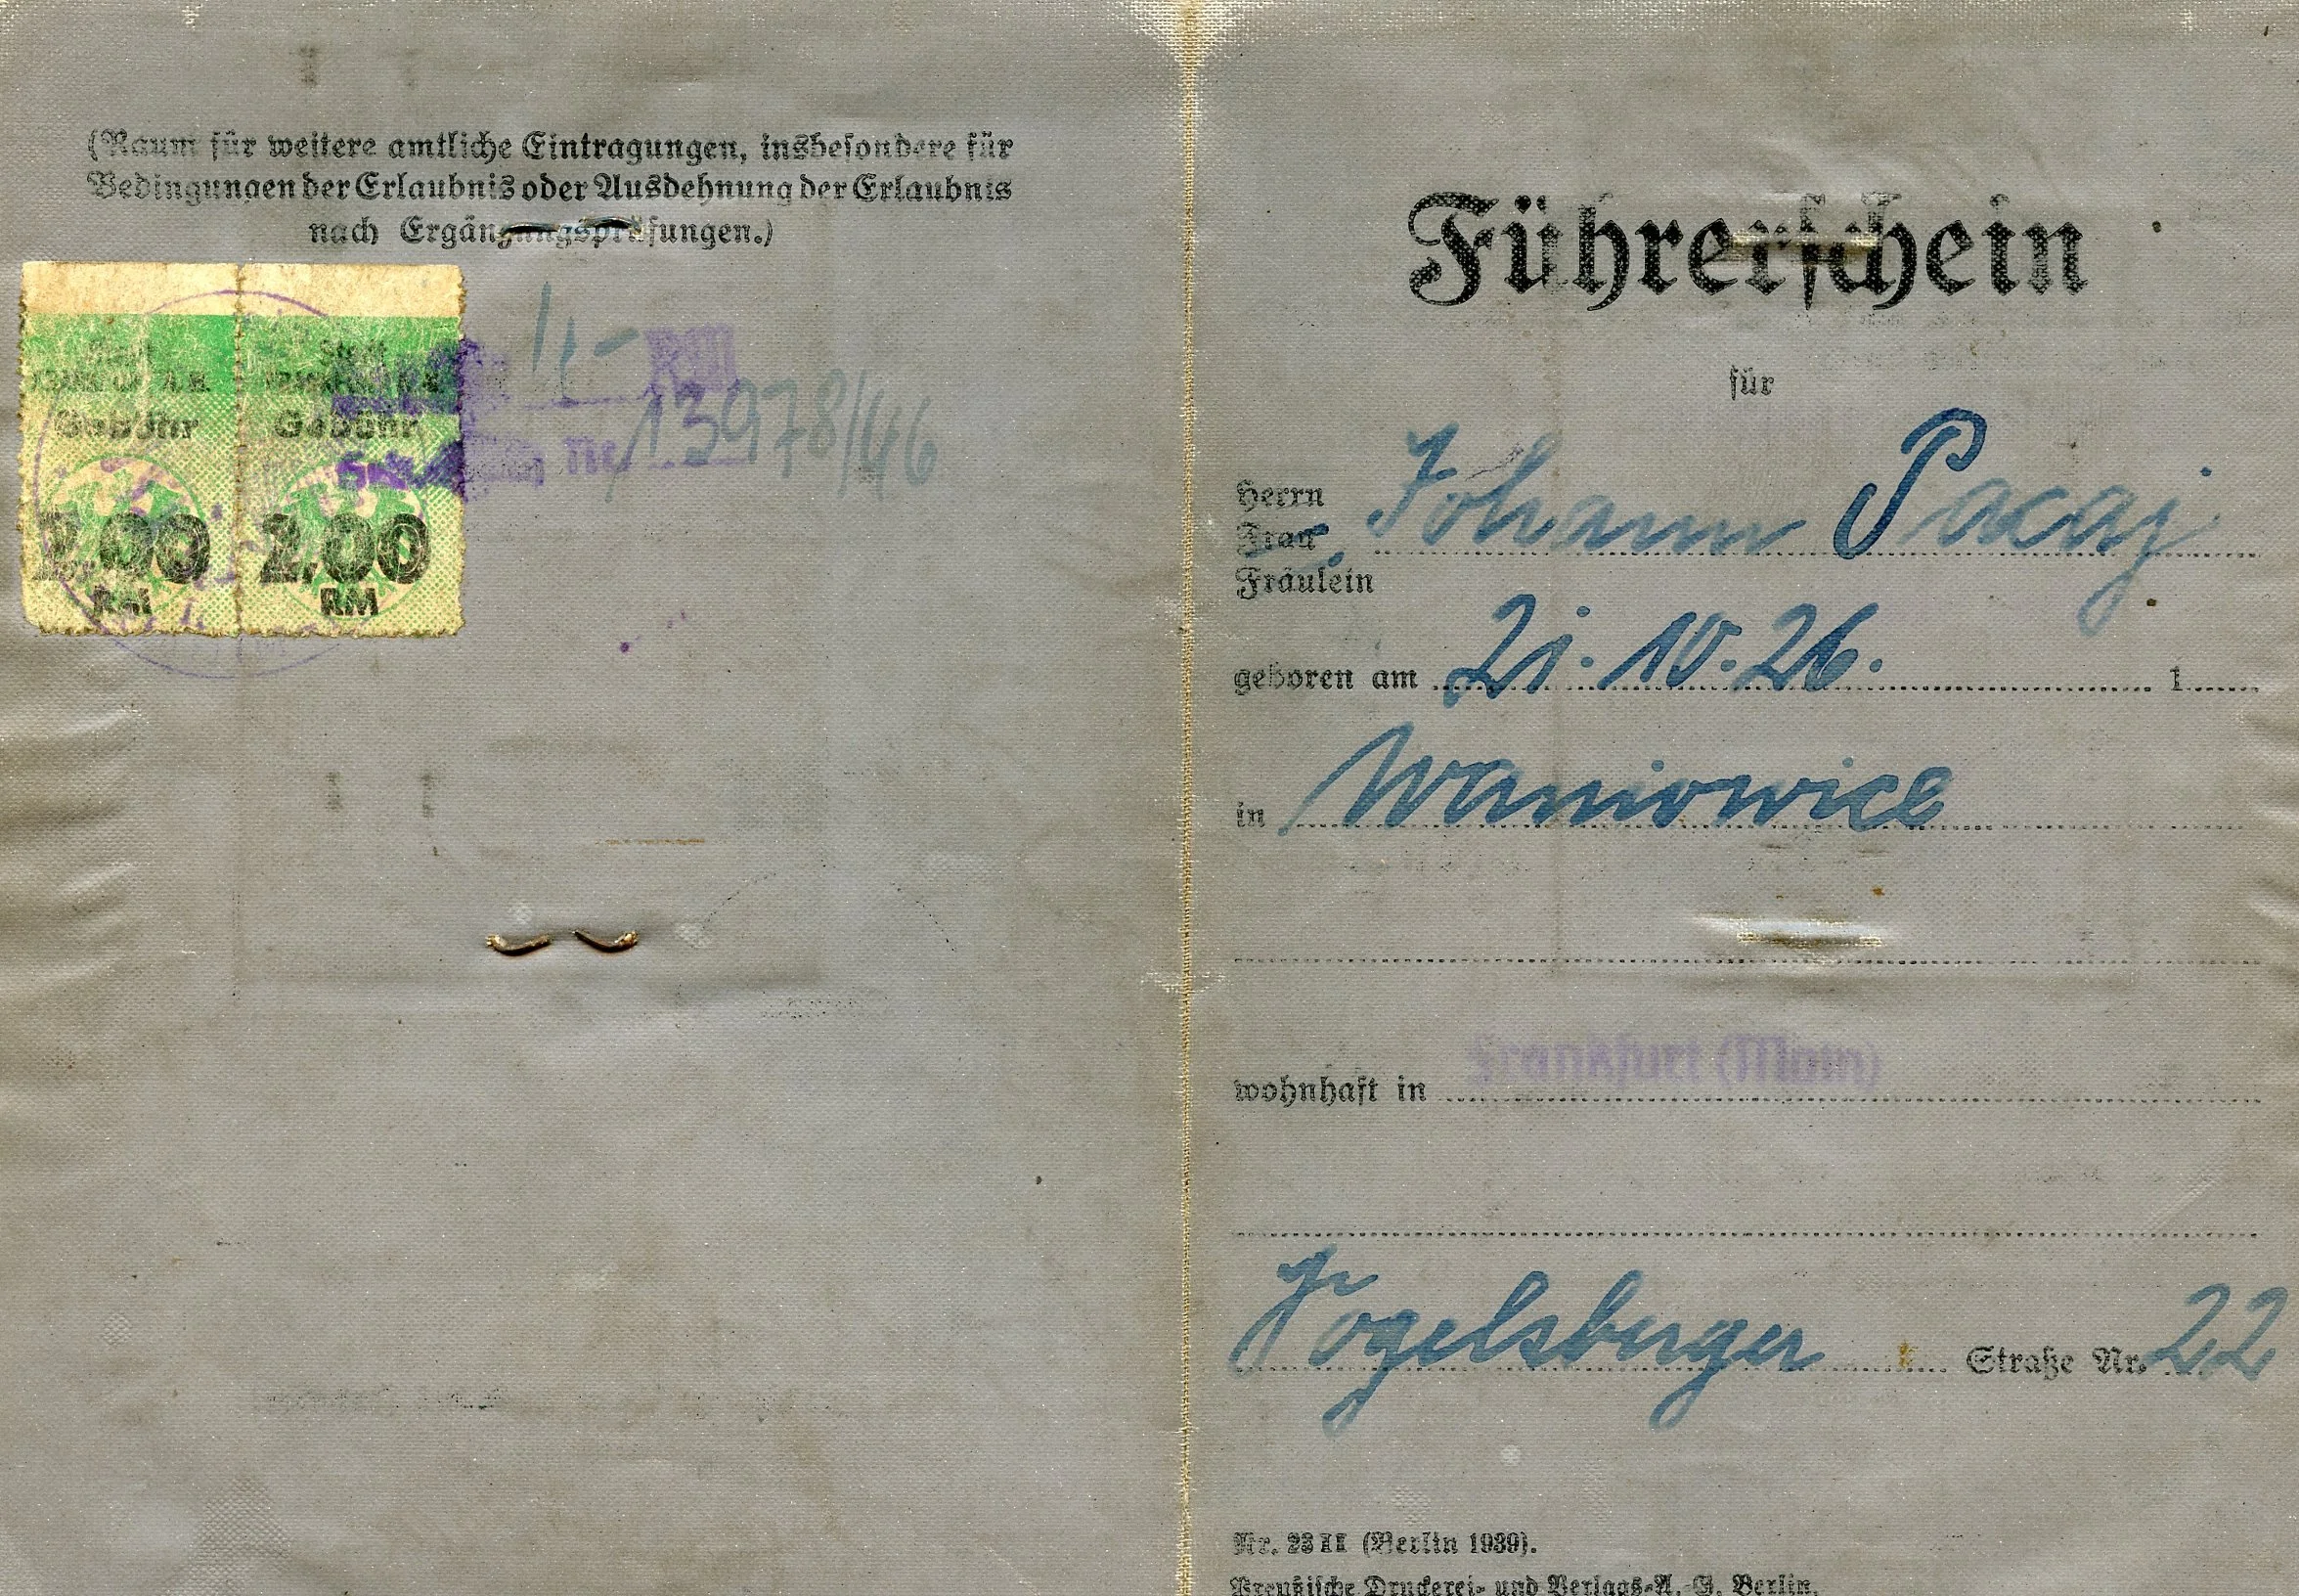 (Raum für weitere amtliche Eintragungen, insbesondere für
Bedingungen der Erlaubnis oder Ausdehnung der Erlaubnis
nach Ergänzungsprüfungen.)
Stadt
Gebühr Gebühr
2.00 2.00
RM RM
4,- RM
Nr. 13978/46
Führerschein
für
Herrn
Frau Johann Pacaj
Fräulein
geboren am 21. 10. 26. 1
in Waniowice
wohnhaft in Frankfurt (Main)
Vogelsberger Straße Nr. 22
Nr. 23 II (Berlin 1939).
Preußische Druckerei- und Verlags-A.-G. Berlin.